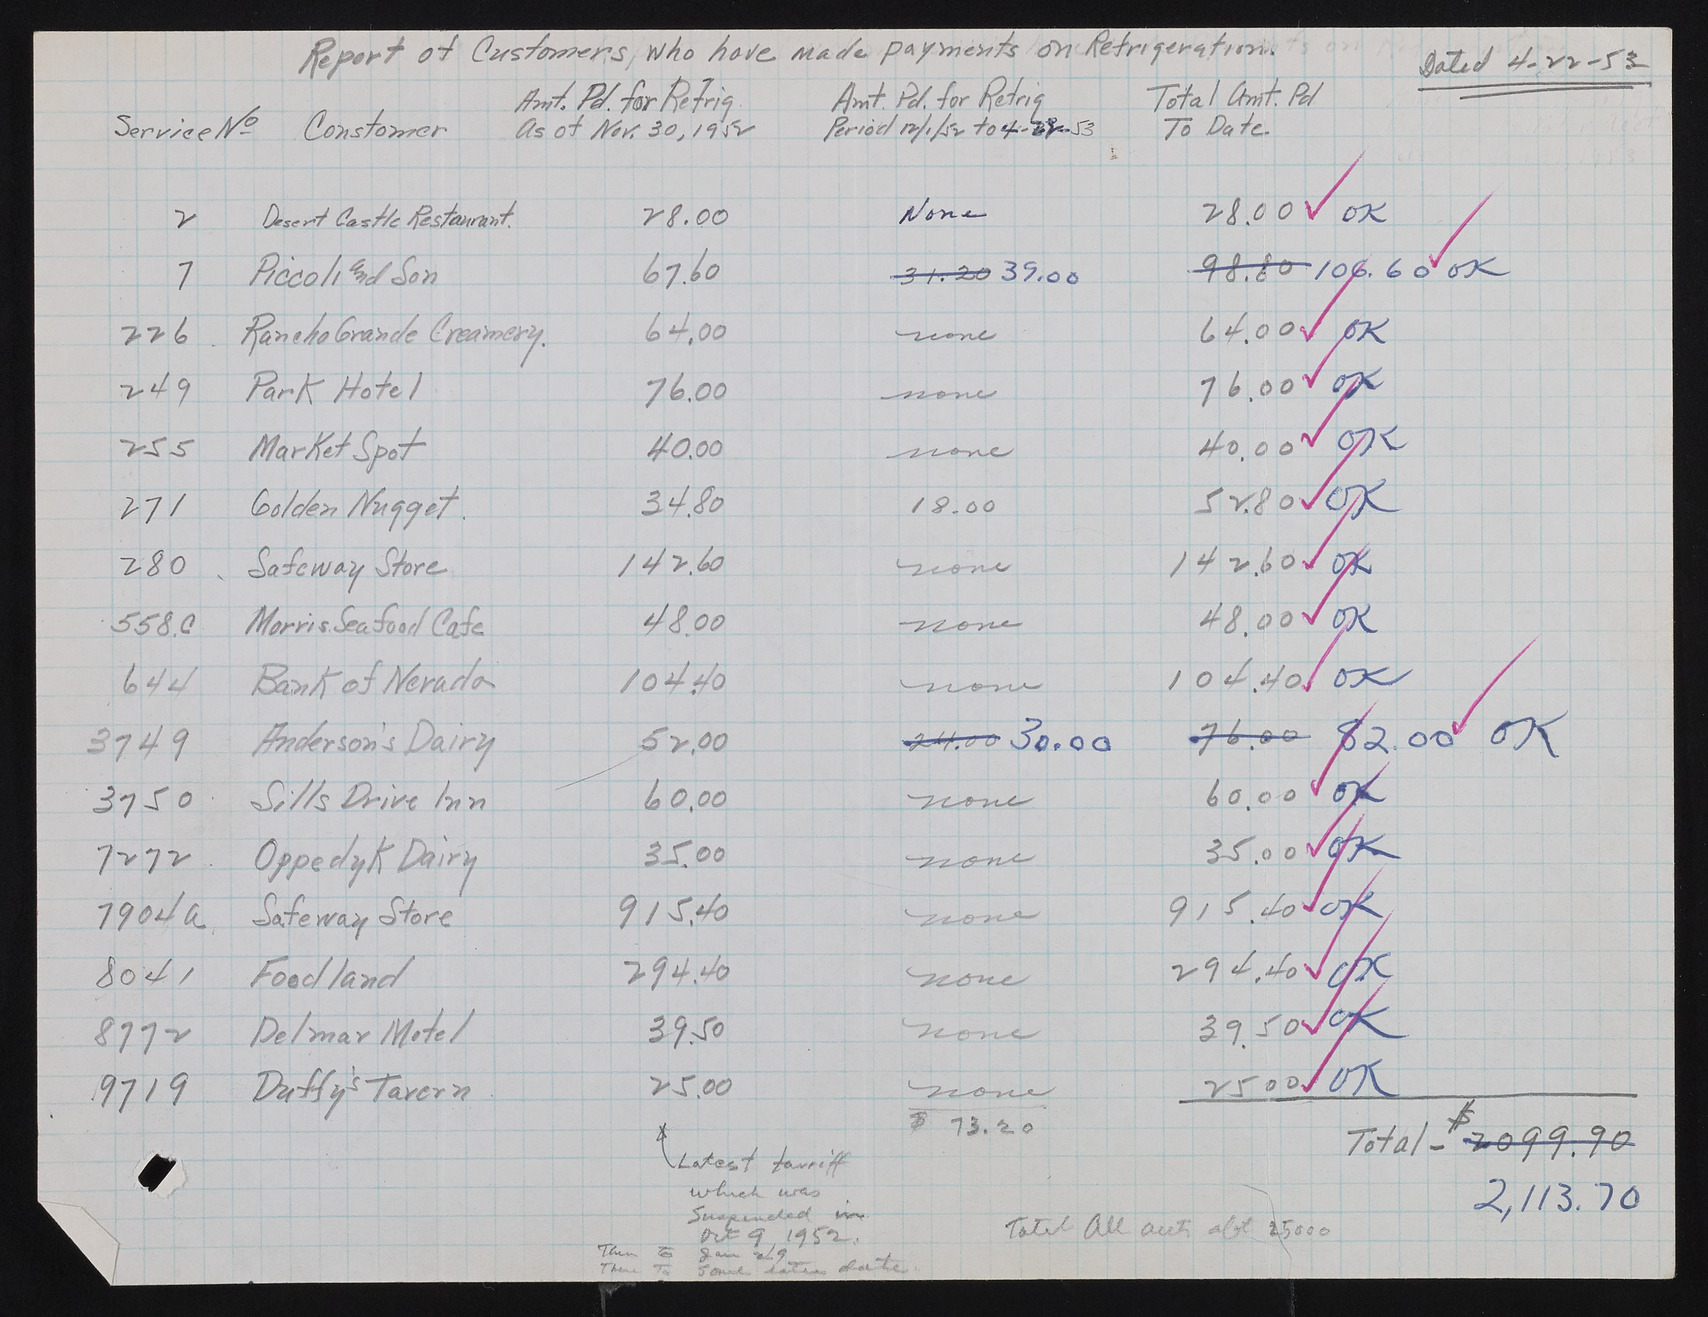 Report of Customers, who have made payments on Refrigeration.
Dated 4-22-53
Amt. Pd. for Refrig. Amt. Pd. for Refrig Total Amt. Pd
Service No Constomer As of Nov. 30, 1952 Period 12/1/52 to 4-22-53 To Date.
2 Desert Castle Restaurant. 28.00 None 28.00 OK
7 Piccoli and Son 67.60 31.20 39.00 98.80 106.60 OK
226 Rancho Grande Creamery. 64.00 none 64.00 OK
249 Park Hotel 76.00 none 76.00 OK
255 Market Spot 40.00 none 40.00 OK
271 Golden Nugget. 34.80 18.00 52.80 OK
280 Safeway Store 142.60 none 142.60 OK
558.C Morris Seafood Cafe 48.00 none 48.00 OK
644 Bank of Nevada 104.40 none 104.40 OK
3749 Anderson's Dairy 52.00 24.00 30.00 76.00 82.00 OK
3750 Sills Drive Inn 60.00 none 60.00 OK
7272 Oppedyk Dairy 35.00 none 35.00 OK
7904a Safeway Store 915.40 none 915.40 OK
8041 Foodland 294.40 none 294.40 OK
8772 Delmar Motel 39.50 none 39.50 OK
9719 Duffy's Tavern 25.00 none 25.00 OK
$ 73.20
Total - $ 2099.90
2,113.70
Latest tarriff
which was
Suspended in
Oct 9, 1952.
Then to Jan 29
Then To some later date.
Total All accts abt 25000